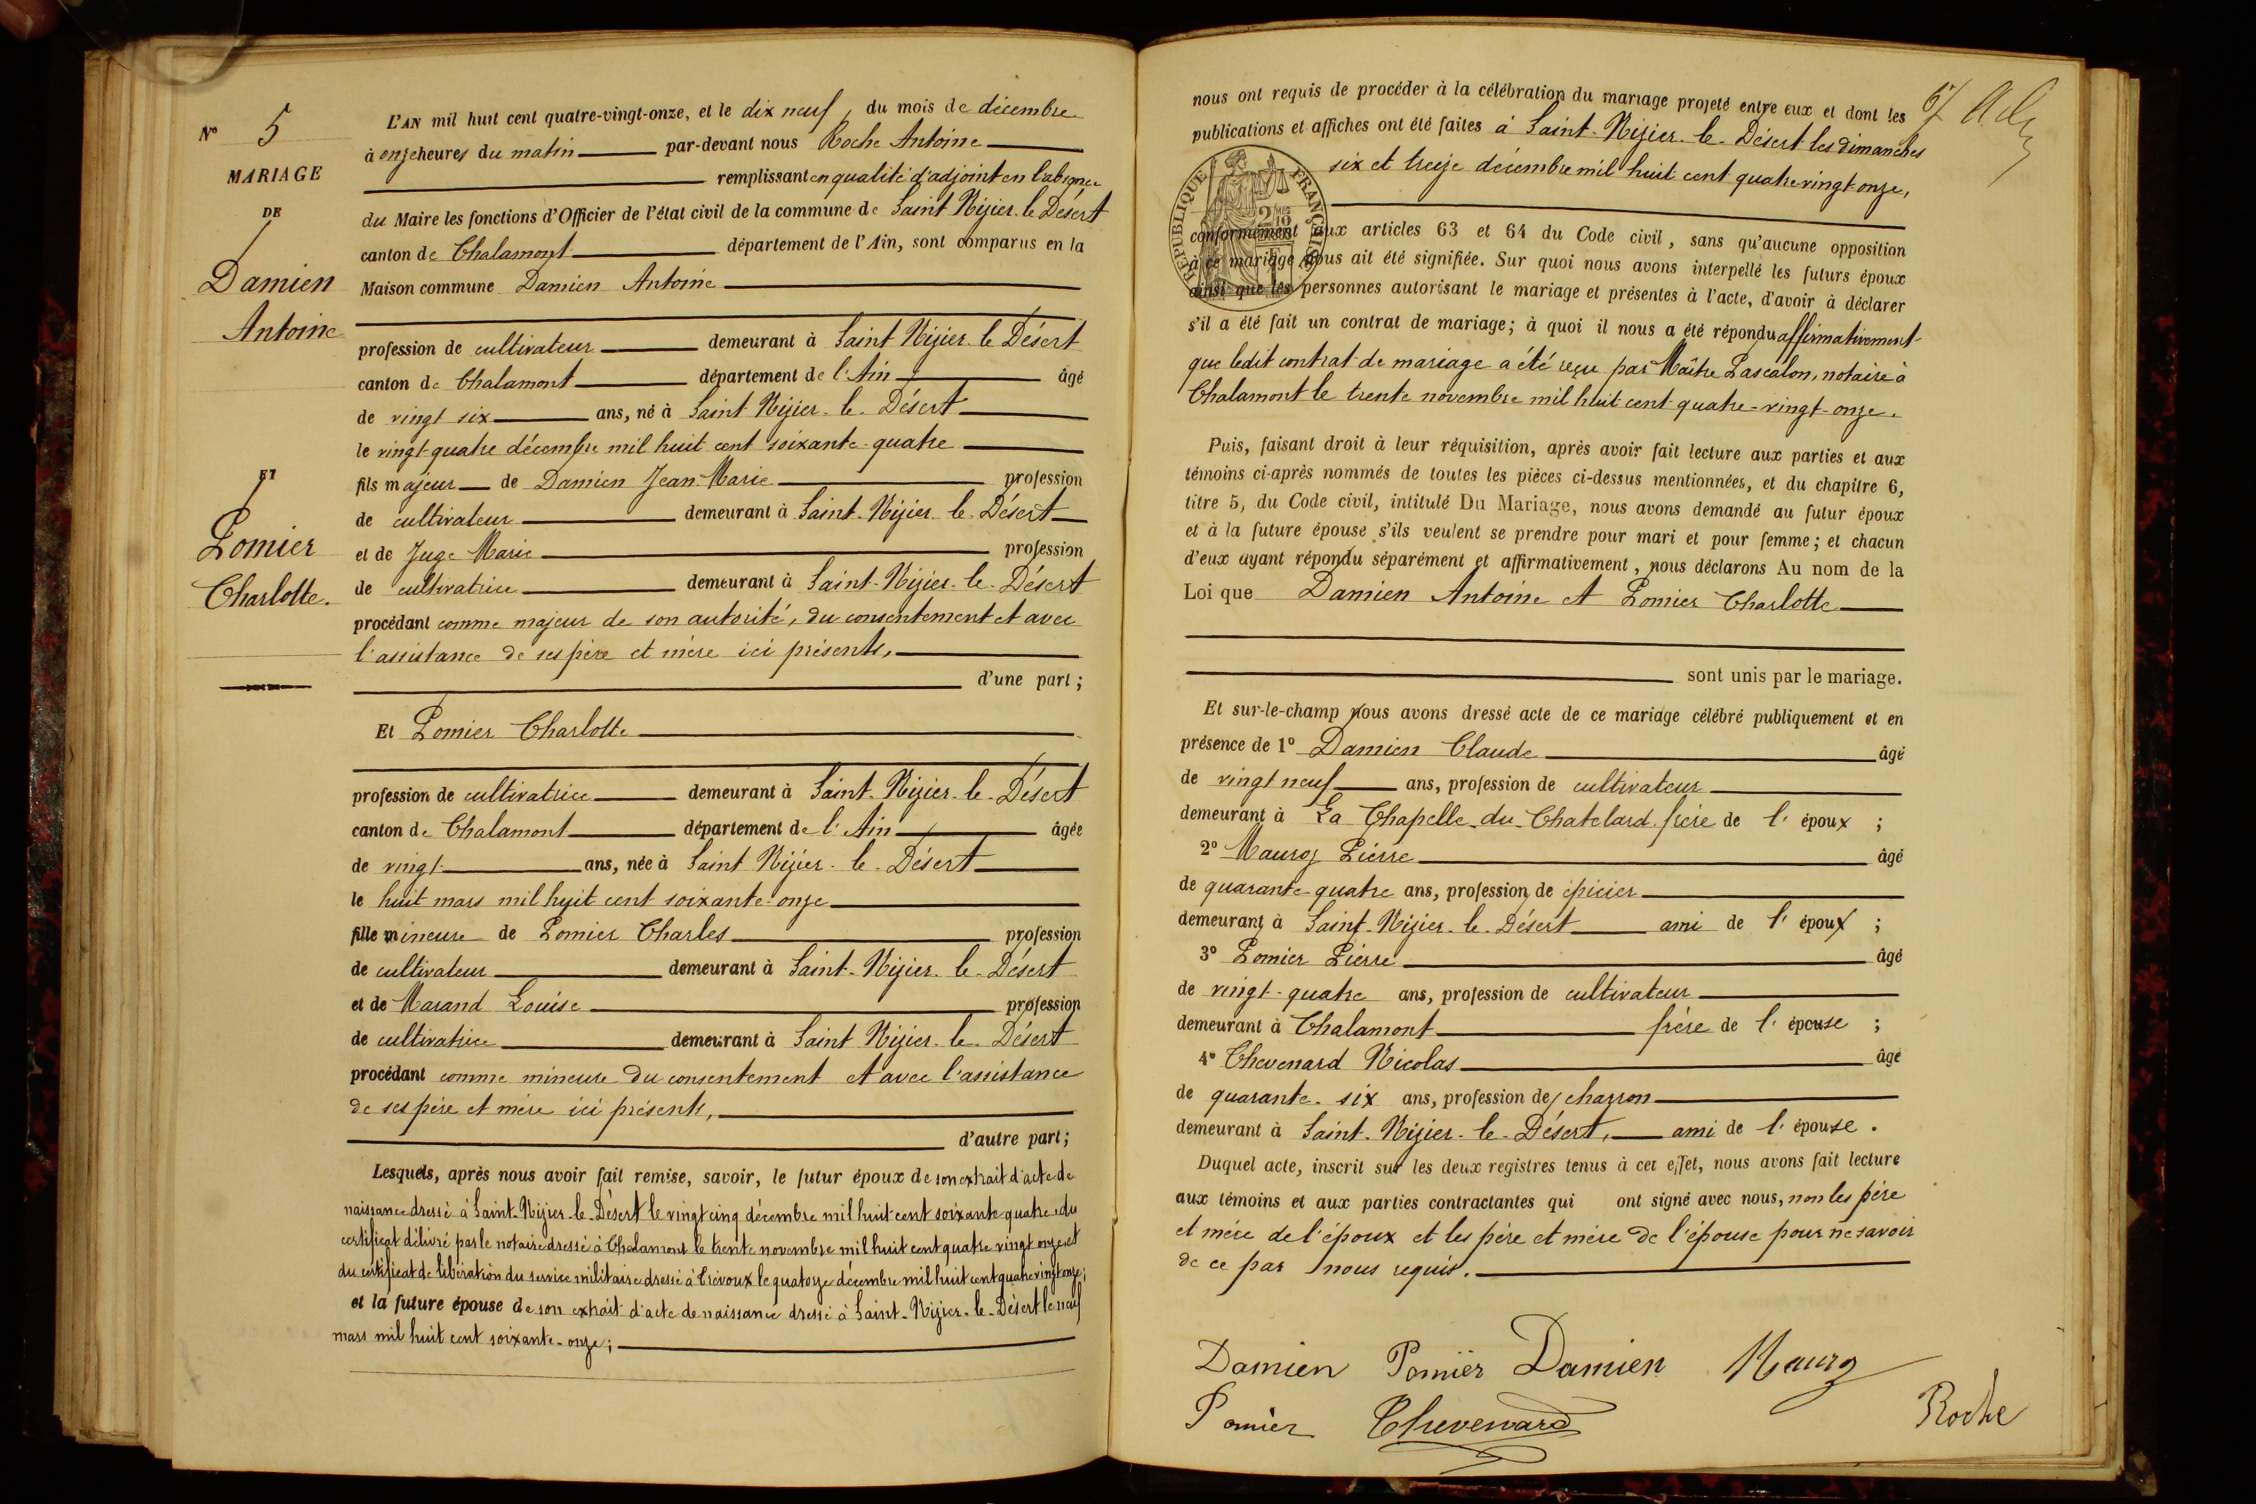 N° 5
MARIAGE
DE
Damien
Antoine
ET
Pomier
Charlotte.
L'AN mil huit cent quatre-vingt-onze, et le dix neuf, du mois de décembre
à onze heures du matin par-devant nous Roche Antoine
remplissant en qualité d'adjoint en l'absence
du Maire les fonctions d'Officier de l'état civil de la commune de Saint Nizier le Désert
canton de Chalamont département de l'Ain, sont comparus en la
Maison commune Damien Antoine
profession de cultivateur demeurant à Saint Nizier le Désert
canton de Chalamont département de l'Ain âgé
de vingt six ans, né à Saint Nizier-le-Désert
le vingt-quatre décembre mil huit cent soixante-quatre
fils majeur de Damien Jean-Marie profession
de cultivateur demeurant à Saint-Nizier-le-Désert
et de Juge Marie profession
de cultivatrice demeurant à Saint-Nizier-le-Désert
procédant comme majeur de son autorité, du consentement et avec
l'assistance de ses père et mère ici présents,
d'une part;
Et Pomier Charlotte
profession de cultivatrice demeurant à Saint-Nizier-le-Désert
canton de Chalamont département de l'Ain âgée
de vingt ans, née à Saint Nizier-le-Désert
le huit mars mil huit cent soixante-onze
fille mineure de Pomier Charles profession
de cultivateur demeurant à Saint-Nizier-le-Désert
et de Marand Louise profession
de cultivatrice demeurant à Saint Nizier-le-Désert
procédant comme mineure du consentement et avec l'assistance
de ses père et mère ici présents,
d'autre part;
Lesquels, après nous avoir fait remise, savoir, le futur époux de son extrait d'acte de
naissance dressé à Saint-Nizier-le-Désert le vingt cinq décembre mil huit cent soixante quatre, du
certificat délivré par le notaire dressé à Chalamont le trente novembre mil huit cent quatre vingt onze et
du certificat de libération du service militaire dressé à Trévoux le quatorze décembre mil huit cent quatre vingt onze;
et la future épouse de son extrait d'acte de naissance dressé à Saint-Nizier-le-Désert le neuf
mars mil huit cent soixante-onze;
nous ont requis de procéder à la célébration du mariage projeté entre eux et dont les
publications et affiches ont été faites à Saint-Nizier-le-Désert les dimanches
six et treize décembre mil huit cent quatre vingt onze,
RÉPUBLIQUE FRANÇAISE
conformément aux articles 63 et 64 du Code civil, sans qu'aucune opposition
à ce mariage nous ait été signifiée. Sur quoi nous avons interpellé les futurs époux
ainsi que les personnes autorisant le mariage et présentes à l'acte, d'avoir à déclarer
s'il a été fait un contrat de mariage; à quoi il nous a été répondu affirmativement
que ledit contrat de mariage a été reçu par Maître Pascalon, notaire à
Chalamont le trente novembre mil huit cent quatre-vingt-onze.
Puis, faisant droit à leur réquisition, après avoir fait lecture aux parties et aux
témoins ci-après nommés de toutes les pièces ci-dessus mentionnées, et du chapitre 6,
titre 5, du Code civil, intitulé Du Mariage, nous avons demandé au futur époux
et à la future épouse s'ils veulent se prendre pour mari et pour femme; et chacun
d'eux ayant répondu séparément et affirmativement, nous déclarons Au nom de la
Loi que Damien Antoine et Pomier Charlotte
sont unis par le mariage.
Et sur-le-champ nous avons dressé acte de ce mariage célébré publiquement et en
présence de 1° Damien Claude âgé
de vingt neuf ans, profession de cultivateur
demeurant à La Chapelle-du-Chatelard frère de l'époux;
2° Mauroz Pierre âgé
de quarante-quatre ans, profession de épicier
demeurant à Saint-Nizier-le-Désert ami de l'époux;
3° Pomier Pierre âgé
de vingt-quatre ans, profession de cultivateur
demeurant à Chalamont frère de l'épouse;
4° Chevenard Nicolas âgé
de quarante-six ans, profession de charron
demeurant à Saint-Nizier-le-Désert, ami de l'épouse.
Duquel acte, inscrit sur les deux registres tenus à cet effet, nous avons fait lecture
aux témoins et aux parties contractantes qui ont signé avec nous, non les père
et mère de l'époux et les père et mère de l'épouse pour ne savoir
de ce par nous requis.
Damien Pomier Damien Mauroz
Pomier Chevenard Roche